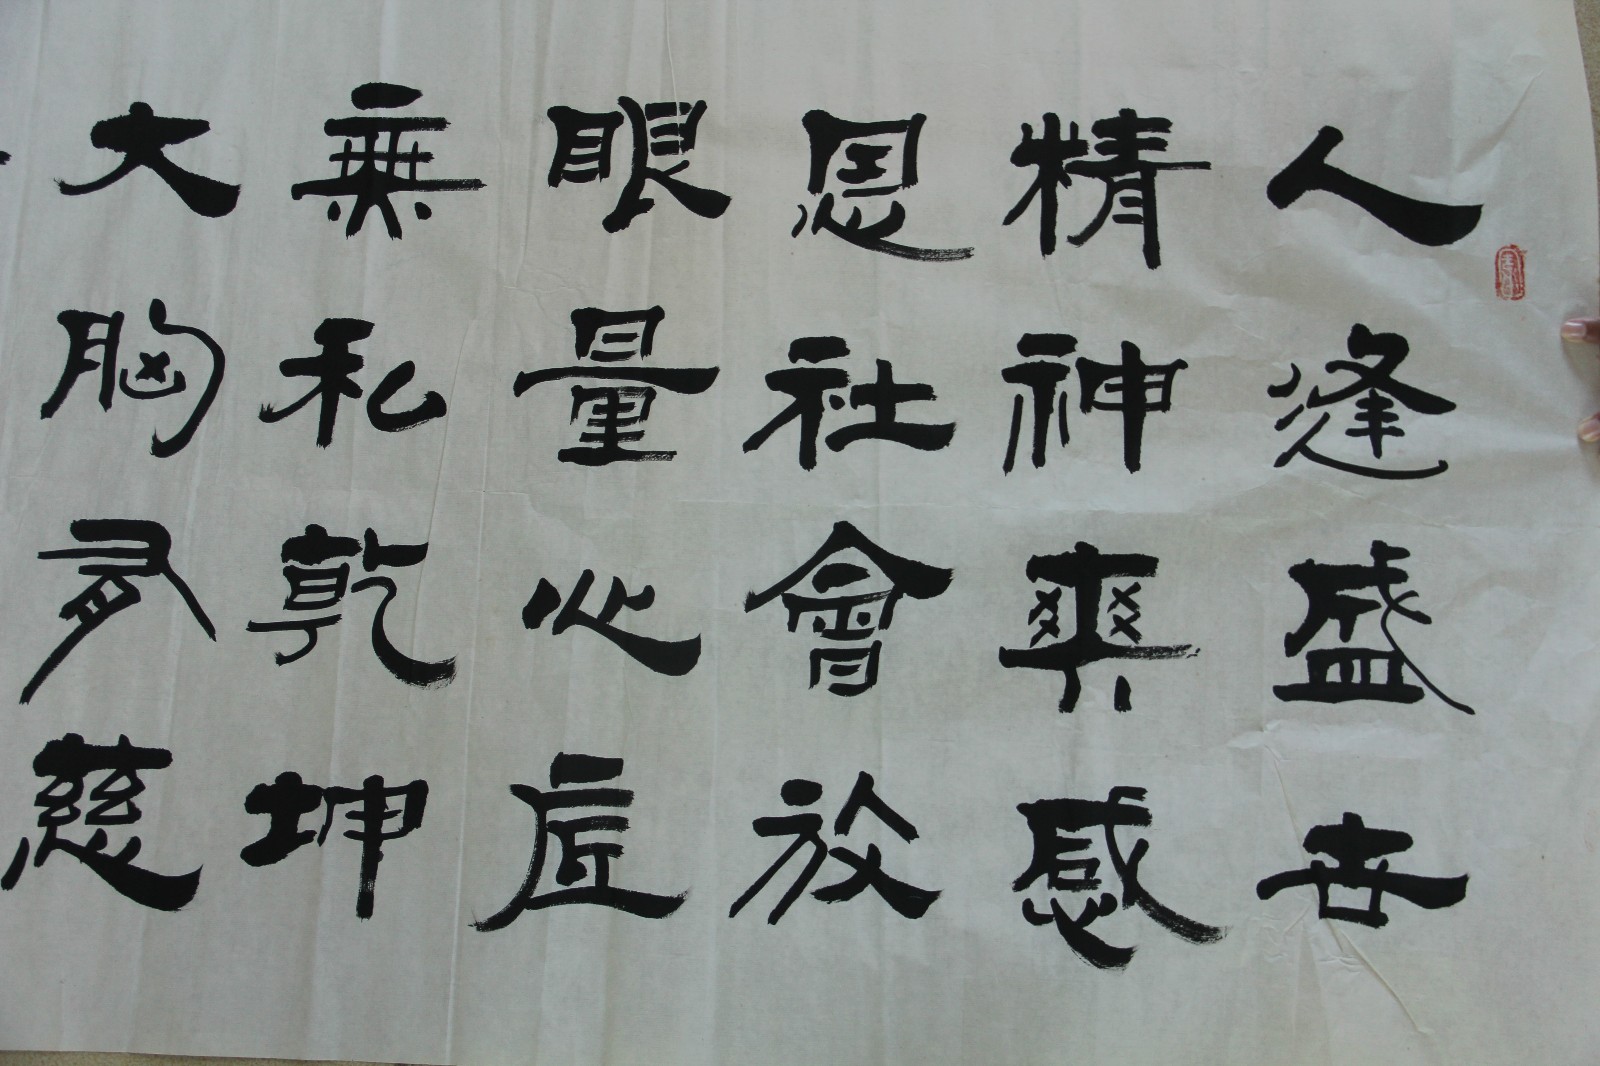 人逢盛世
精神爽感
恩社會放
眼量心底
無私乾坤
大胸多慈